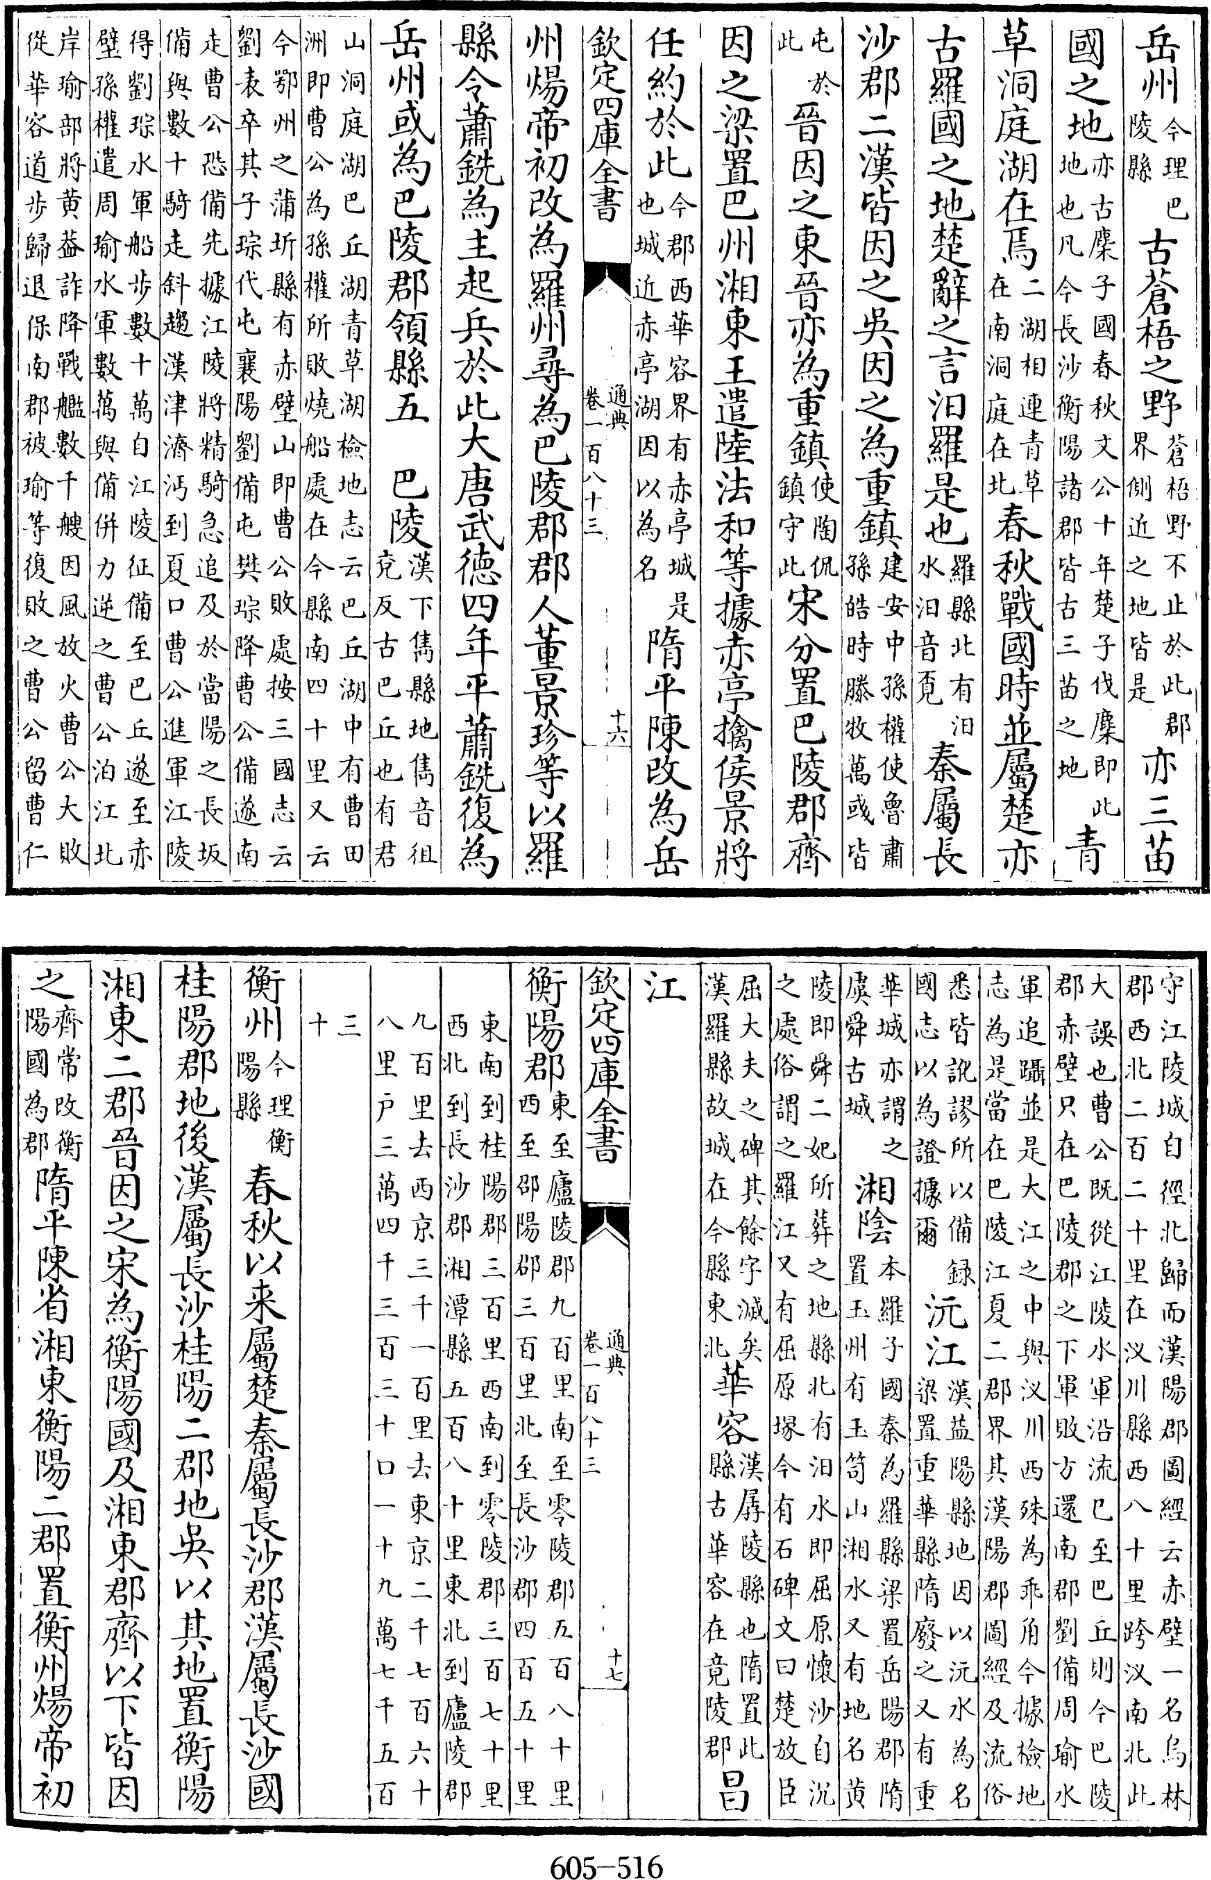 岳州今理巴陵縣古蒼梧之野蒼梧野不止於此郡界側近之地皆是亦三苗
國之地亦古麇子國春秋文公十年楚子伐麇即此地也凡今長沙衡陽諸郡皆古三苗之地青
草洞庭湖在焉二湖相連青草在南洞庭在北春秋戰國時並屬楚亦
古羅國之地楚辭之言汨羅是也羅縣北有汨水汨音覔秦屬長
沙郡二漢皆因之吳因之為重鎮建安中孫權使魯肅孫皓時滕牧萬彧皆
屯於此晉因之東晉亦為重鎮使陶侃鎮守此宋分置巴陵郡齊
因之梁置巴州湘東王遣陸法和等據赤亭擒侯景將
任約於此今郡西華容界有赤亭城是也城近赤亭湖因以為名隋平陳改為岳
欽定四庫全書 通典卷一百八十三 十六
州煬帝初改為羅州尋為巴陵郡郡人董景珍等以羅
縣令蕭銑為主起兵於此大唐武德四年平蕭銑復為
岳州或為巴陵郡領縣五 巴陵漢下雋縣地雋音徂兗反古巴丘也有君
山洞庭湖巴丘湖青草湖檢地志云巴丘湖中有曹田
洲即曹公為孫權所敗燒船處在今縣南四十里又云
今鄂州之蒲圻縣有赤壁山即曹公敗處按三國志云
劉表卒其子琮代屯襄陽劉備屯樊琮降曹公備遂南
走曹公恐備先據江陵將精騎急追及於當陽之長坂
備與數十騎走斜趨漢津濟沔到夏口曹公進軍江陵
得劉琮水軍船步數十萬自江陵征備至巴丘遂至赤
壁孫權遣周瑜水軍數萬與備併力逆之曹公泊江北
岸瑜部將黃葢詐降戰艦數千艘因風放火曹公大敗
從華容道步歸退保南郡被瑜等復敗之曹公留曹仁
守江陵城自徑北歸而漢陽郡圖經云赤壁一名烏林
郡西北二百二十里在汊川縣西八十里跨汊南北此
大誤也曹公既從江陵水軍沿流已至巴丘則今巴陵
郡赤壁只在巴陵郡之下軍敗方還南郡劉備周瑜水
軍追躡並是大江之中與汊川西殊為乖角今據檢地
志為是當在巴陵江夏二郡界其漢陽郡圖經及流俗
悉皆訛謬所以備録國志以為證據爾沅江漢益陽縣地因以沅水為名梁置重華縣隋廢之又有重
華城亦謂之虞舜古城湘陰本羅子國秦為羅縣梁置岳陽郡隋置玉州有玉笥山湘水又有地名黃
陵即舜二妃所葬之地縣北有汨水即屈原懷沙自沉
之處俗謂之羅江又有屈原塚今有石碑文曰楚放臣
屈大夫之碑其餘字滅矣漢羅縣故城在今縣東北華容漢孱陵縣也隋置此縣古華容在竟陵郡昌
江
欽定四庫全書 通典卷一百八十三 十七
衡陽郡東至廬陵郡九百里南至零陵郡五百八十里西至邵陽郡三百里北至長沙郡四百五十里
東南到桂陽郡三百里西南到零陵郡三百七十里
西北到長沙郡湘潭縣五百八十里東北到廬陵郡
九百里去西京三千一百里去東京二千七百六十
八里戶三萬四千三百三十口一十九萬七千五百
三
十
衡州今理衡陽縣春秋以来屬楚秦屬長沙郡漢屬長沙國
桂陽郡地後漢屬長沙桂陽二郡地吳以其地置衡陽
湘東二郡晉因之宋為衡陽國及湘東郡齊以下皆因
之齊常改衡陽國為郡隋平陳省湘東衡陽二郡置衡州煬帝初
605-516